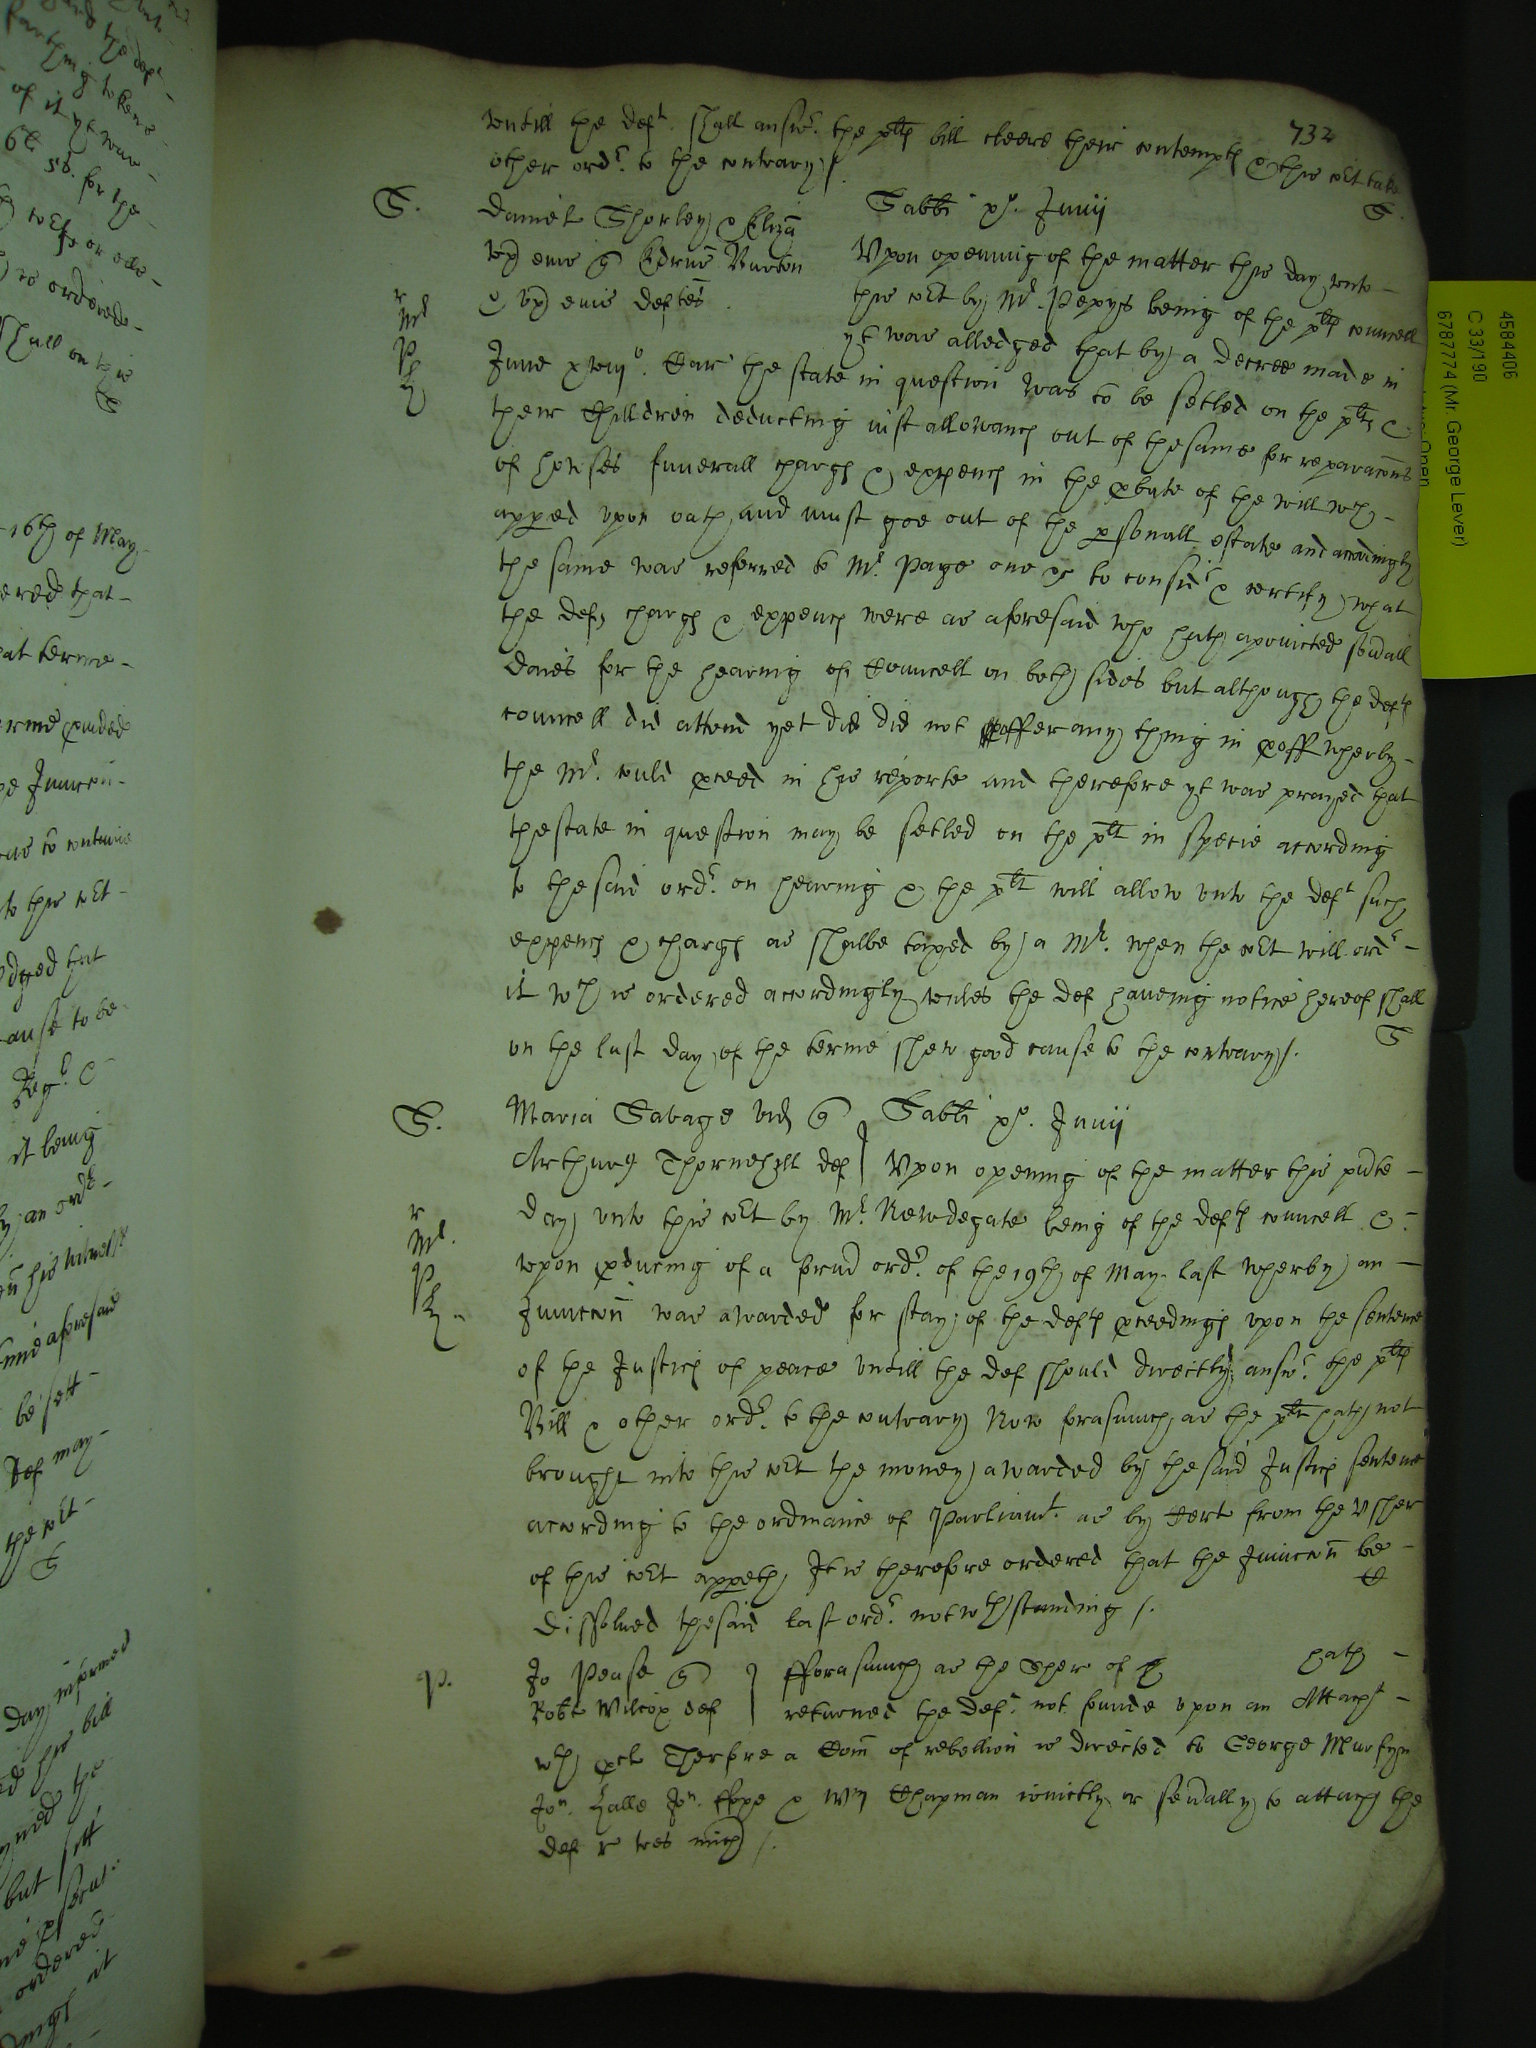 732
untill the deft. shall answr. the plts bill cleere their contempts & this Cot take
other ordr. to the contrary /.
S.
S.
Daniel Shorley & Eliza
ux eius q Edrus Burton
& ux eius deftes.
Sabbti po. Junij
Upon opening of the matter this day unto
this Cot by Mr. Pepys being of the plts councell
yt was alledged that by a decree made in
r
Mr
P
June xviijo. Car the state in question was to be setled on the plts &
their Children deducting iust allowancs out of thesame for reparacons
of howses funerall chargs & expencs in the pbate of the will wch
apped upon oath and must goe out of the psonall estate and accordingly
the same was referred to Mr. Page one &c to considr & certify what
the defts chargs & expencs were as aforesaid who hath apointed sevall
daies for the hearing of Councell on both sides but although the defts
councell did attend yet did did not offer any thing in proff wherby
the Mr. could pceed in his reporte and therefore yt was prayed that
thestate in question may be setled on the plt in specie according
to thesaid ordr. on hearing & the plt will allow unto the deft such
expencs & chargs as shalbe taxed by a Mr. when the Cot will ordr
it wch is ordered accordingly unles the def haveing notice hereof shall
on the last day of the terme shew good cause to the contrary /.
S
S.
Maria Savage vid q
Arthurus Thornehill def
Sabbti po. Junij
Upon opening of the matter this pnte
r
Mr.
P
day unto this Cot by Mr. Newdegate being of the defts councell &
upon pducing of a formr ordr. of the 19th of May last wherby an
Iniuncon was awarded for stay of the defts pceedings upon the sentence
of the Justics of peace untill the def should directly answr. the plts
Bill & other ordr. to the contrary Now forasmuch as the plt hath not
brought into this Cot the money awarded by thesaid Justics sentence
according to the ordinance of Parliamt. as by Cert from the Usher
of this Cot appeth It is therefore ordered that the Iniuncon be
dissolved thesaid last ordr. notwthstanding /.
P.
Jo Pease q
Robte Wilcox def
fforasmuch as the Sher of hath
returned the deft. not founde upon an Attacht
wth pcl Therfore a Com of rebellion is directed to George Murfyn
Jon. Halle Jon. ffoxe & Wm Chapman ioinctly or sevally to attach the
def
4584406
C 33/190
6787774 (Mr. George Lever)
16th of May
ered that
at terme
he Iniuncon
to this Cot
ause to be
Regr. &
it being
by an ordr
his
aforesaid
be sett
def may
the Cot
day informed
his bill
the
but sett
ordered